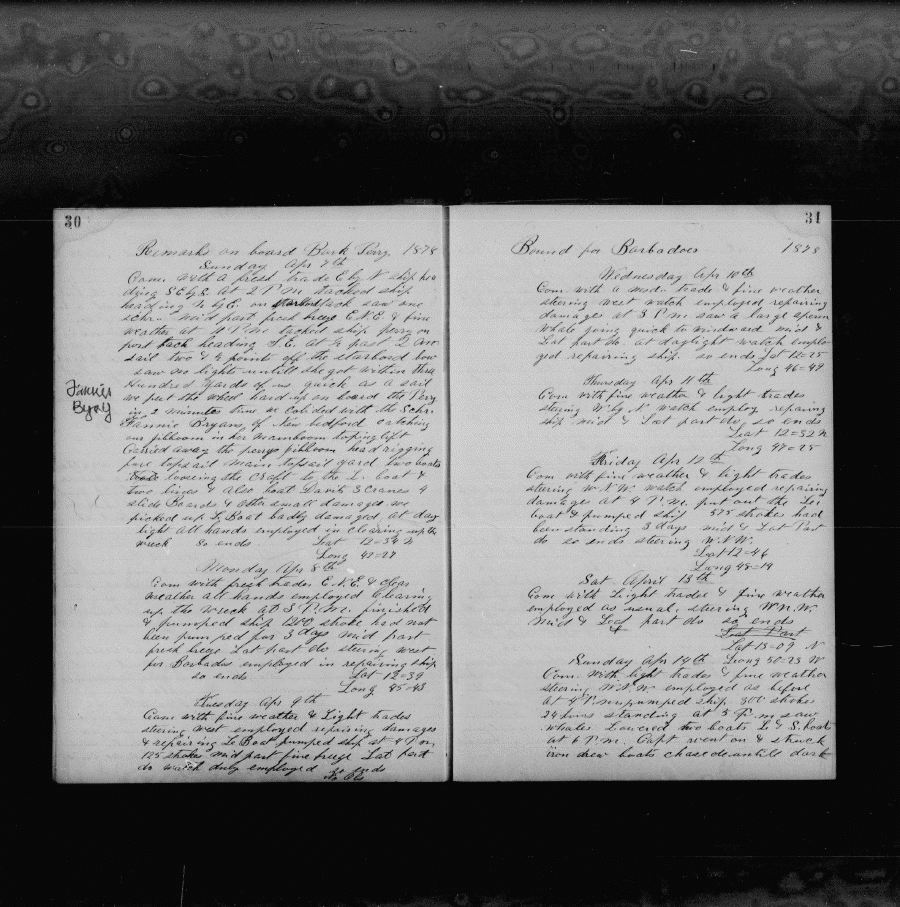 30
Remarks on board Bark Perry 1878
Sunday Apr 7th
Com. with a fresh trade E by N ship hea
ding S E by E. at 2 P.m tacked ship
heading N by E. on tack saw one
schr. mid part fresh breze E.N.E. & fine
weather at P.m tacked ship on
port tack heading S.E. at ½ past 2 Am
sail two & ½ points off the starbord bow
saw no lights untill she got within three
Hundred yards of us quick as a sail
we put the wheel hard up on board the Perry
in 2 minutes time we colided with the Schr.
Fannie Byran, of New bedford catching
our jibboom in her mainboom toping lift
Carried away the jibboom head rigging
fore topsail main topsail yard two boats
loosing the Craft to the L. boat &
two lines & also boat Davits 3 Cranes 4
slide Boards & other small damage we
picked up L Boat badly damaged at day
light all hands employed in clearing up the
wreck so ends Lat 12=34 N
Long 42=27
Fannie
Byran
Monday Apr 8th
Com with fresh trades E.N.E. & clear
weather all hands employed Clearing
up the wreck at 3 P.m. finished
& pumped ship 1200 stroke had not
been pumped for 3 days mid part
fresh breze Lat part do steering west
for Barbados employed in repairing ship
so ends Lat 12=39
Long 45=43
Tuesday Apr 9th
Com with fine weather & Light trades
steering west employed repairing damages
& repairing L Boat pumped ship at 4 P.m,
125 strokes mid part fine breze Lat part
do watch duly employed so ends
No Obs
31
Bound for Barbadoes 1878
Wednesday Apr 10th
Com with a mode trade & fine weather
steering west watch employed repairing
damages at 3 P.m saw a large sperm
whale going quick to windward mid &
Lat part do. at daylight watch emplo-
yed repairing ship. so ends Lat 12=25
Long 46=49
Thursday Apr 11th
Com with fine weather & light trades
steering W by N. watch employ repairing
ship mid & Lat part do, so ends
Lat 12=32 N
Long 47=25
Friday Apr 12th
Com with fine weather & light trades
steering W.N.W. watch employed repairing
damage at 4 P.m, put out the La
boat & pumped ship 575 strokes had
been standing 3 days mid & Lat Part
do so ends steering W.N.W.
Lat 12=46
Long 48=14
Sat April 13th
Com with Light trades & fine weather
employed as usual, steering W.N.W.
Mid & Lat part do so ends
Lat Part
Lat 13=09 N
Sunday Apr 14th Long 50=23 W
Com. with light trades & fine weather
steering W.N.W employed as before
at 4 P.m pumped ship 300 strokes
24 hours standing at 5 P.m saw
whales Lowered two boats L & S. boats
at 6 P.m Capt went on & struck
iron drew boats chased untill dark